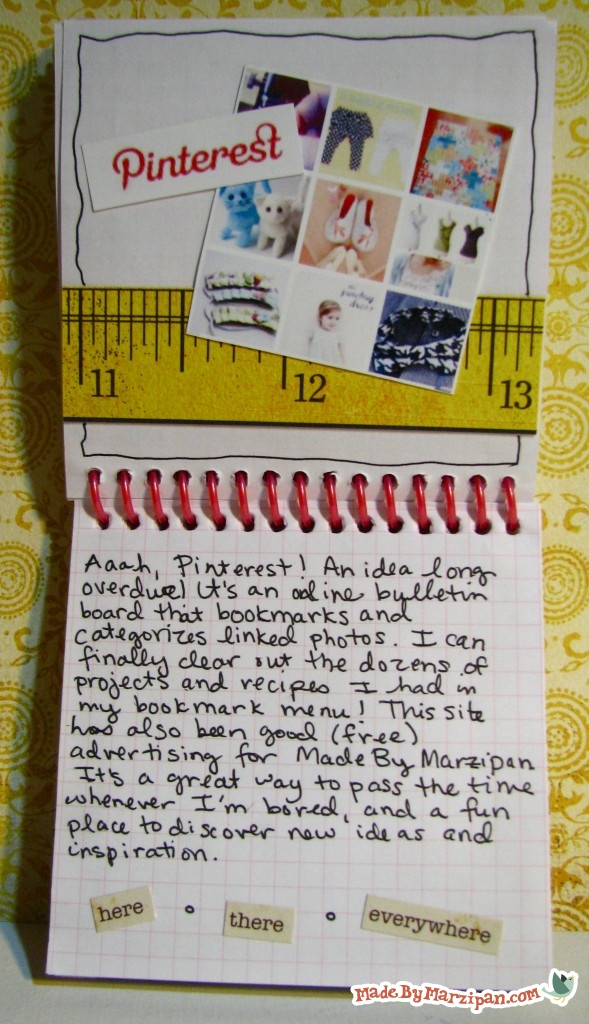 Pinterest
11 12 13
Aaah, Pinterest! An idea long
overdue! It's an online bulletin
board that bookmarks and
categorizes linked photos. I can
finally clear out the dozens of
projects and recipes I had in
my bookmark menu! This site
has also been good (free)
advertising for Made By Marzipan
It's a great way to pass the time
whenever I'm bored, and a fun
place to discover new ideas and
inspiration.
here • there • everywhere
MadeByMarzipan.com